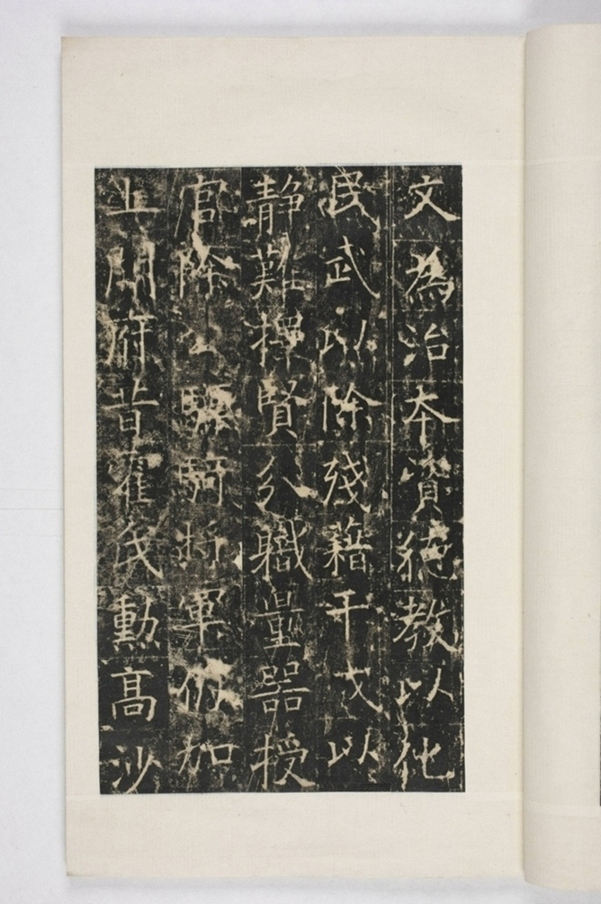 文為治本資施教以化
民武以除殘藉干戈以
静難擇賢分職量器授
官除公驃騎將軍仍加
上開府昔霍氏勳高沙